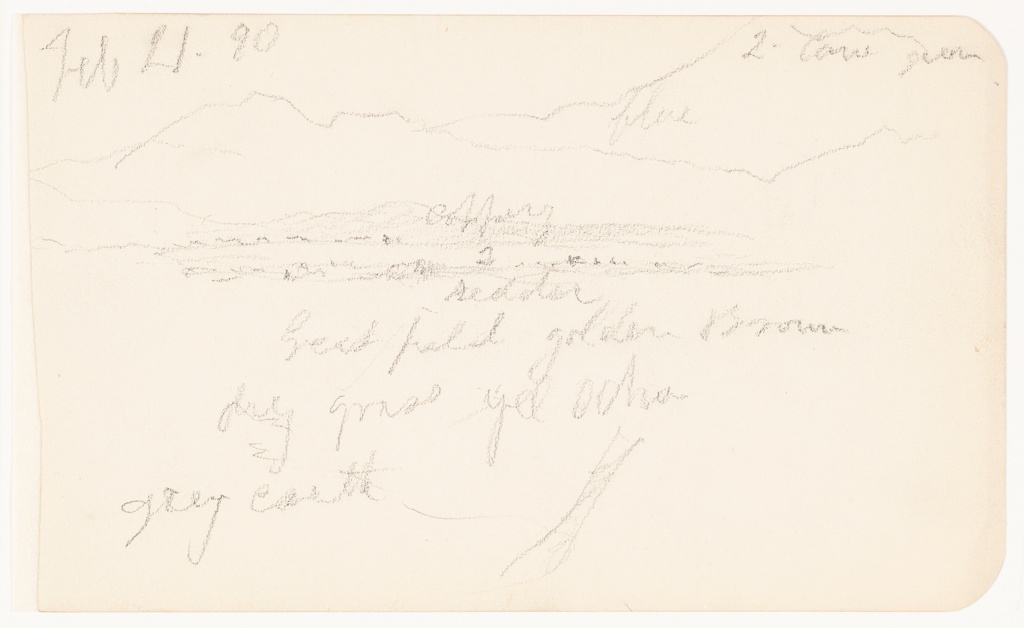 Feb 21. 90
2. Cane green
blue
coppery
2
redder
Great field golden Brown
dry grass yel Ochre
grey earth